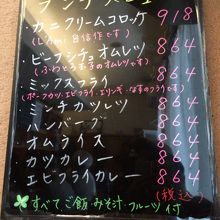 ・カニクリームコロッケ 918
(L'Ami 自信作です)
・ビーフシチュオムレツ 864
(ふわとろ玉子のオムレツです)
・ミックスフライ 864
(ポークカツ・エビフライ・エリンギ・なすのフライです)
・ミンチカツレツ 864
・ハンバーグ 864
・オムライス 864
・カツカレー 864
・エビフライカレー 864
(税込)
すべてご飯・みそ汁・フルーツ付